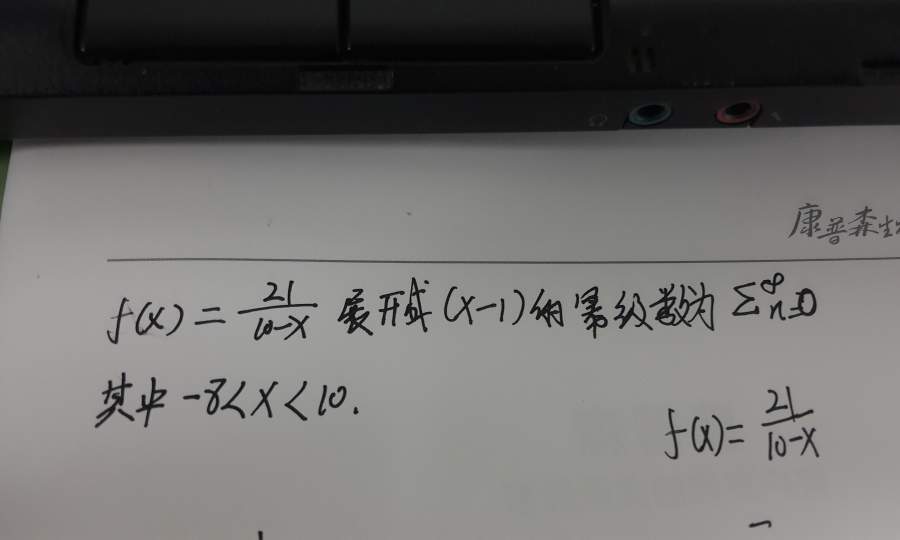 康普森生
f(x) = 21/(10-x) 展开成 (x-1) 的幂级数为 Σ_{n=0}^∞
其中 -8<x<10.
f(x) = 21/(10-x)